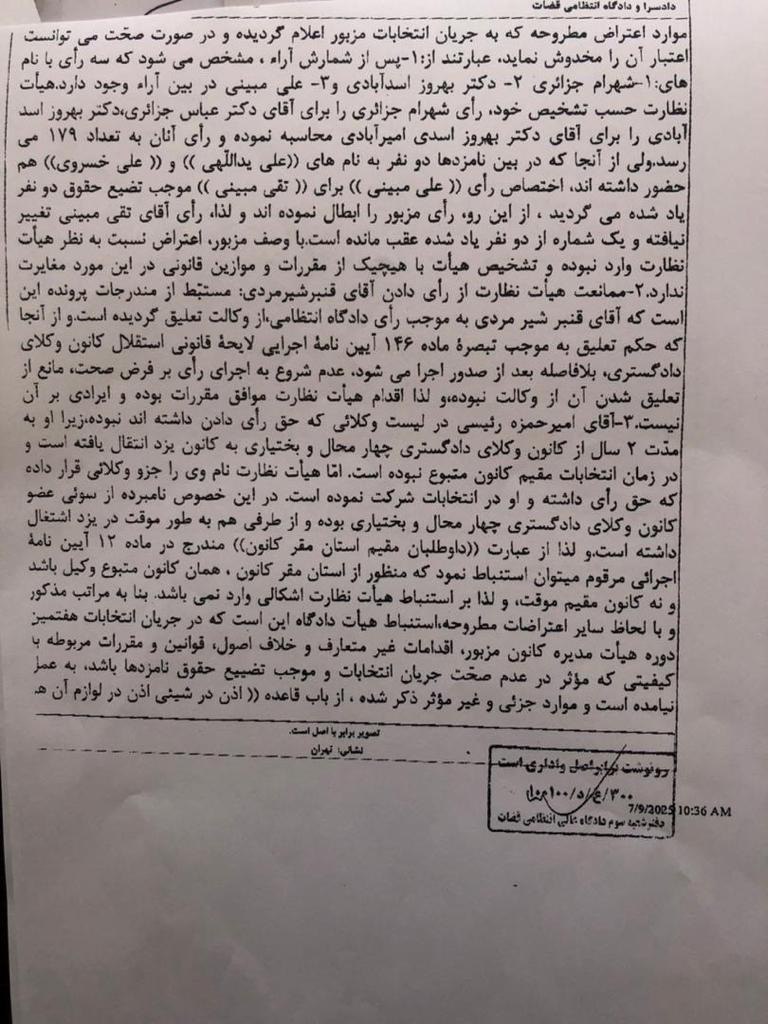 دادسرا و دادگاه انتظامی قضات
موارد اعتراض مطروحه که به جریان انتخابات مزبور اعلام گردیده و در صورت صحّت می توانست
اعتبار آن را مخدوش نماید، عبارتند از:۱-پس از شمارش آراء ، مشخص می شود که سه رأی با نام
های:۱-شهرام جزائری ۲- دکتر بهروز اسدآبادی و۳- علی مبینی در بین آراء وجود دارد.هیأت
نظارت حسب تشخیص خود، رأی شهرام جزائری را برای آقای دکتر عباس جزائری،دکتر بهروز اسد
آبادی را برای آقای دکتر بهروز اسدی امیرآبادی محاسبه نموده و رأی آنان به تعداد ۱۷۹ می
رسد.ولی از آنجا که در بین نامزدها دو نفر به نام های ((علی یداللّهی )) و (( علی خسروی)) هم
حضور داشته اند، اختصاص رأی (( علی مبینی )) برای (( تقی مبینی )) موجب تضیع حقوق دو نفر
یاد شده می گردید ، از این رو، رأی مزبور را ابطال نموده اند و لذا، رأی آقای تقی مبینی تغییر
نیافته و یک شماره از دو نفر یاد شده عقب مانده است.با وصف مزبور، اعتراض نسبت به نظر هیأت
نظارت وارد نبوده و تشخیص هیأت با هیچیک از مقررات و موازین قانونی در این مورد مغایرت
ندارد.۲-ممانعت هیأت نظارت از رأی دادن آقای قنبرشیرمردی: مستنبَط از مندرجات پرونده این
است که آقای قنبر شیر مردی به موجب رأی دادگاه انتظامی،از وکالت تعلیق گردیده است.و از آنجا
که حکم تعلیق به موجب تبصرهٔ ماده ۱۴۶ آیین نامهٔ اجرایی لایحهٔ قانونی استقلال کانون وکلای
دادگستری، بلافاصله بعد از صدور اجرا می شود، عدم شروع به اجرای رأی بر فرض صحت، مانع از
تعلیق شدن آن از وکالت نبوده،و لذا اقدام هیأت نظارت موافق مقررات بوده و ایرادی بر آن
نیست.۳-آقای امیرحمزه رئیسی در لیست وکلائی که حق رأی دادن داشته اند نبوده،زیرا او به
مدّت ۲ سال از کانون وکلای دادگستری چهار محال و بختیاری به کانون یزد انتقال یافته است و
در زمان انتخابات مقیم کانون متبوع نبوده است. امّا هیأت نظارت نام وی را جزو وکلائی قرار داده
که حق رأی داشته و او در انتخابات شرکت نموده است. در این خصوص نامبرده از سوئی عضو
کانون وکلای دادگستری چهار محال و بختیاری بوده و از طرفی هم به طور موقت در یزد اشتغال
داشته است.و لذا از عبارت ((داوطلبان مقیم استان مقر کانون)) مندرج در ماده ۱۲ آیین نامهٔ
اجرائی مرقوم میتوان استنباط نمود که منظور از استان مقر کانون ، همان کانون متبوع وکیل باشد
و نه کانون مقیم موقت، و لذا بر استنباط هیأت نظارت اشکالی وارد نمی باشد. بنا به مراتب مذکور
و با لحاظ سایر اعتراضات مطروحه،استنباط هیأت دادگاه این است که در جریان انتخابات هفتمین
دوره هیأت مدیره کانون مزبور، اقدامات غیر متعارف و خلاف اصول، قوانین و مقررات مربوطه با
کیفیتی که مؤثر در عدم صحّت جریان انتخابات و موجب تضییع حقوق نامزدها باشد، به عمل
نیامده است و موارد جزئی و غیر مؤثر ذکر شده ، از باب قاعده (( اذن در شیئی اذن در لوازم آن ه
تصویر برابر با اصل است.
نشانی: تهران
رونوشت برابر اصل واداری است
7/9/2025 10:36 AM
دفتر شعبه سوم دادگاه عالی انتظامی قضات